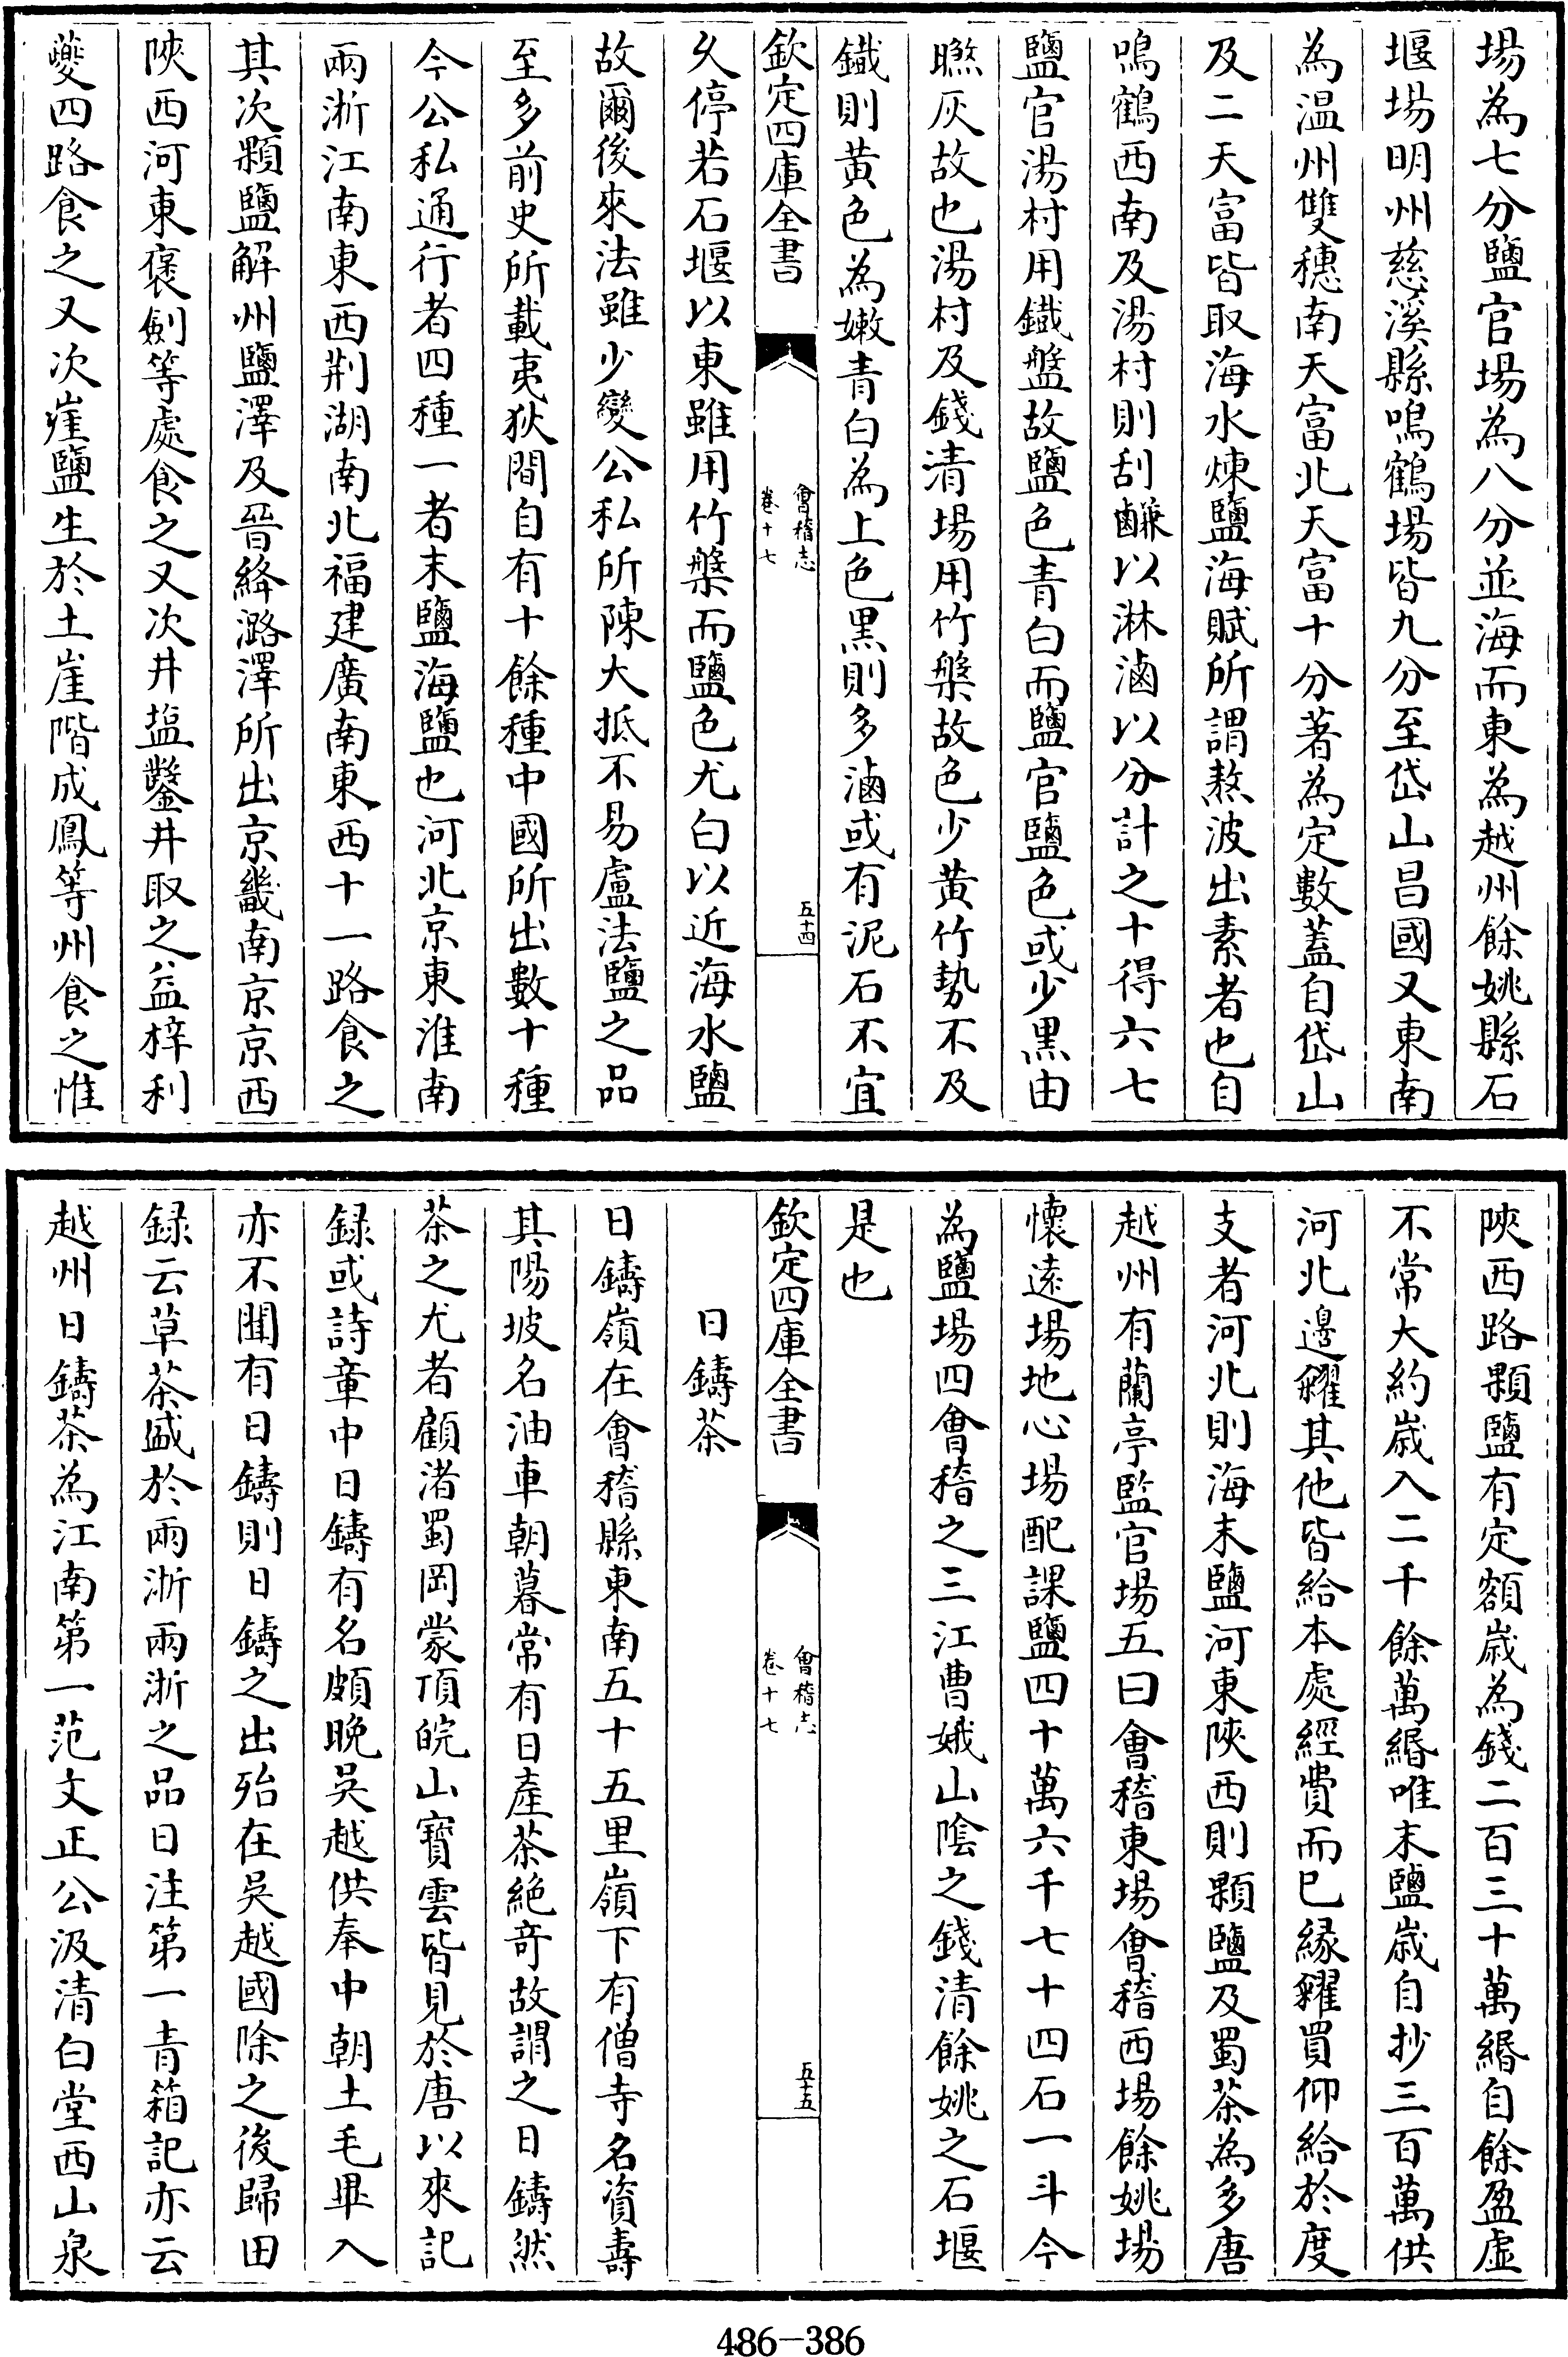 場為七分鹽官場為八分並海而東為越州餘姚縣石
堰場明州慈溪縣鳴鶴場皆九分至岱山昌國又東南
為温州雙穗南天富北天富十分著為定數蓋自岱山
及二天富皆取海水煉鹽海賦所謂熬波出素者也自
鳴鶴西南及湯村則刮鹻以淋滷以分計之十得六七
鹽官湯村用鐵盤故鹽色青白而鹽官鹽色或少黒由
㬠灰故也湯村及錢清場用竹槃故色少黄竹勢不及
鐵則黄色為嫩青白為上色黒則多滷或有泥石不宜
欽定四庫全書
會稽志
卷十七
五十四
乆停若石堰以東雖用竹槃而鹽色尤白以近海水鹽
故爾後來法雖少變公私所陳大抵不易盧法鹽之品
至多前史所載夷狄間自有十餘種中國所出數十種
今公私通行者四種一者末鹽海鹽也河北京東淮南
兩浙江南東西荆湖南北福建廣南東西十一路食之
其次顆鹽解州鹽澤及晉絳潞澤所出京畿南京京西
陜西河東褒劍等處食之又次井塩鑿井取之益梓利
夔四路食之又次崖鹽生於土崖階成鳳等州食之惟
陜西路顆鹽有定額嵗為錢二百三十萬緡自餘盈虚
不常大約嵗入二千餘萬緡唯末鹽嵗自抄三百萬供
河北邊糴其他皆給本處經費而已縁糴買仰給於度
支者河北則海末鹽河東陜西則顆鹽及蜀茶為多唐
越州有蘭亭監官場五曰會稽東場會稽西場餘姚場
懷逺場地心場配課鹽四十萬六千七十四石一斗今
為鹽場四會稽之三江曹娥山隂之錢清餘姚之石堰
是也
欽定四庫全書
會稽志
卷十七
五十五
日鑄茶
日鑄嶺在會稽縣東南五十五里嶺下有僧寺名資壽
其陽坡名油車朝暮常有日產茶絶奇故謂之日鑄然
茶之尤者顧渚蜀岡蒙頂皖山寳雲皆見於唐以來記
録或詩章中日鑄有名頗晚吳越供奉中朝土毛畢入
亦不聞有日鑄則日鑄之出殆在吳越國除之後歸田
録云草茶盛於兩浙兩浙之品日注第一青箱記亦云
越州日鑄茶為江南第一范文正公汲清白堂西山泉
486-386